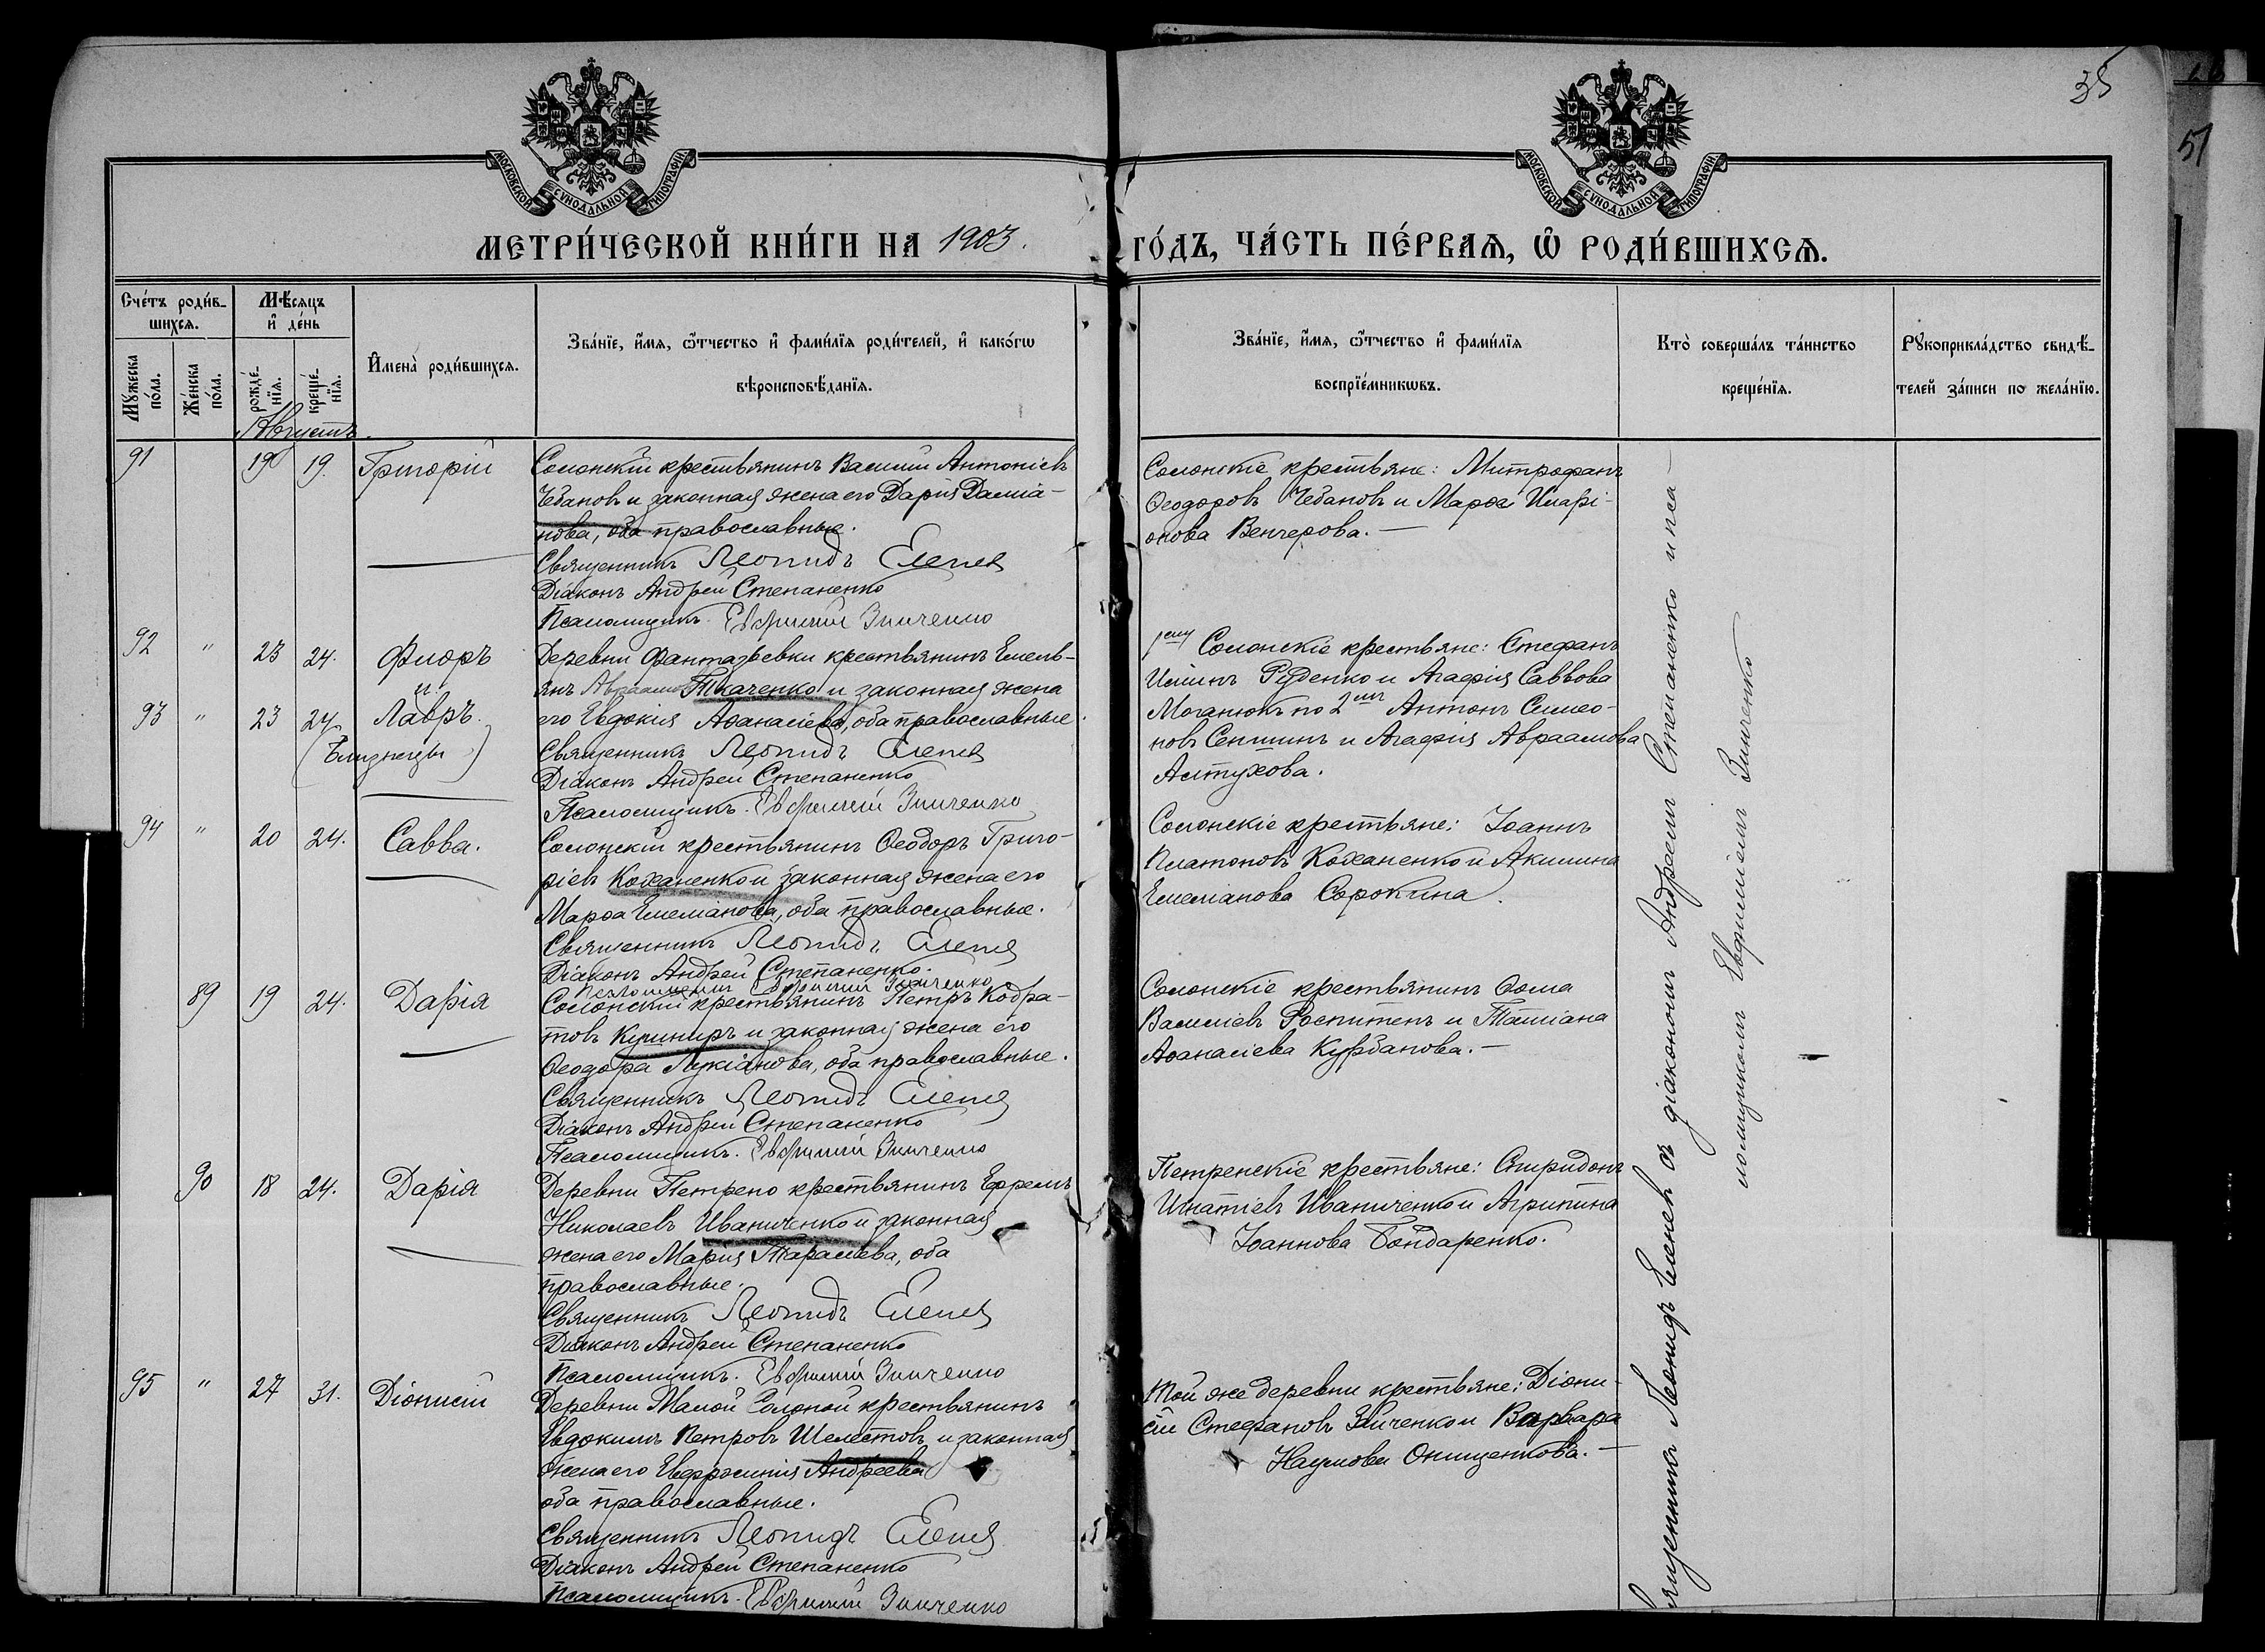 35
51
МОСКОВСКОЙ СУНОДАЛЬНОЙ ТИПОГРАФІИ
МОСКОВСКОЙ СУНОДАЛЬНОЙ ТИПОГРАФІИ
МЕТРИ́ЧЕСКОЙ КНИ́ГИ НА 1903.
ГО́ДЪ, ЧА́СТЬ ПЕ́РВАѦ, Ѡ РОДИ́ВШИХСѦ.
Сче́тъ роди́в-
шихсѧ.
Мꙋжеска по́ла.
Же́нска по́ла.
Мѣ́сѧцъ
и де́нь
рожде́-
нїѧ.
креще́-
нїѧ.
Имена̀ роди́вшихсѧ.
Зва́нїе, и́мѧ, ѻ҆́тчество и фами́лїѧ роди́телей, и како́гѡ
вѣроисповѣ́данїѧ.
Зва́нїе, и́мѧ, ѻ҆́тчество и фами́лїѧ
воспрїе́мникѡвъ.
Кто̀ соверша́лъ та́инство
креще́нїѧ.
Рꙋкоприкла́дство свидѣ́-
телей за́писи по жела́нїю.
Августъ.
91 19 19. Григорій
Солонскій крестьянинъ Василій Антоніевъ
Чебановъ и законная жена его Дарія Даміа-
нова, оба православные.
Священникъ Леонидъ Еленев
Діаконъ Андрей Степаненко
Псаломщикъ. Евфимій Зинченко
Солонскіе крестьяне: Митрофанъ
Ѳеодоровъ Чебановъ и Марѳа Иларі-
онова Венчерова. —
92 " 23 24. Флоръ
и
93 " 23 24. Лавръ.
(Близнецы)
Деревни Фантазьевки крестьянинъ Емель-
янъ Авраамовъ Ткаченко и законная жена
его Евдокія Аѳанасіева, оба православные.
Священникъ Леонидъ Еленев
Діаконъ Андрей Степаненко
Псаломщикъ. Евфимій Зинченко
Солонскіе крестьяне: Стефанъ
Руденко и Агафія Саввова
по 2 Антонъ Симео-
новъ и Агафія Авраамова
Алтухова.
94 " 20 24. Савва.
Солонскій крестьянинъ Ѳеодоръ Григо-
ріевъ Коханенко и законная жена его
Марѳа Емеліанова, оба православные.
Священникъ Леонидъ Еленев
Діаконъ Андрей Степаненко.
Псаломщикъ Евфимій Зинченко
Солонскіе крестьяне: Іоаннъ
Платоновъ Коханенко и Акилина
Емеліанова Сорокина.
89 19 24. Дарія
Солонскій крестьянинъ Петръ Кодра-
товъ Кушниръ и законная жена его
Ѳеодора Лукіанова, оба православные.
Священникъ Леонидъ Еленев
Діаконъ Андрей Степаненко
Псаломщикъ. Евфимій Зинченко
Солонскіе крестьянинъ Ѳома
Василіевъ и Татіана
Аѳанасіева Курбанова. —
90 18 24. Дарія
Деревни Петрено крестьянинъ Ефремъ
Николаевъ Иваниченко и законная
жена его Марія Тарасіева, оба
православные.
Священникъ Леонидъ Еленев
Діаконъ Андрей Степаненко
Псаломщикъ. Евфимій Зинченко
Петренскіе крестьяне: Спиридонъ
Игнатіевъ Иваниченко и Агрипина
Іоаннова Бондаренко.
95 " 27 31. Діонисій
Деревни Малой Солоной крестьянинъ
Евдокимъ Петровъ Шелестовъ и законная
жена его Евфросинія Андреева
оба православные.
Священникъ Леонидъ Еленев
Діаконъ Андрей Степаненко
Псаломщикъ. Евфимій Зинченко
Той же деревни крестьяне: Діони-
сій Стефановъ Заиченко и Варвара
Наумова Онищенкова. —
Священникъ Леонидъ Еленевъ съ діакономъ Андреемъ Степаненко и пса-
ломщикомъ Евфиміемъ Зинченко